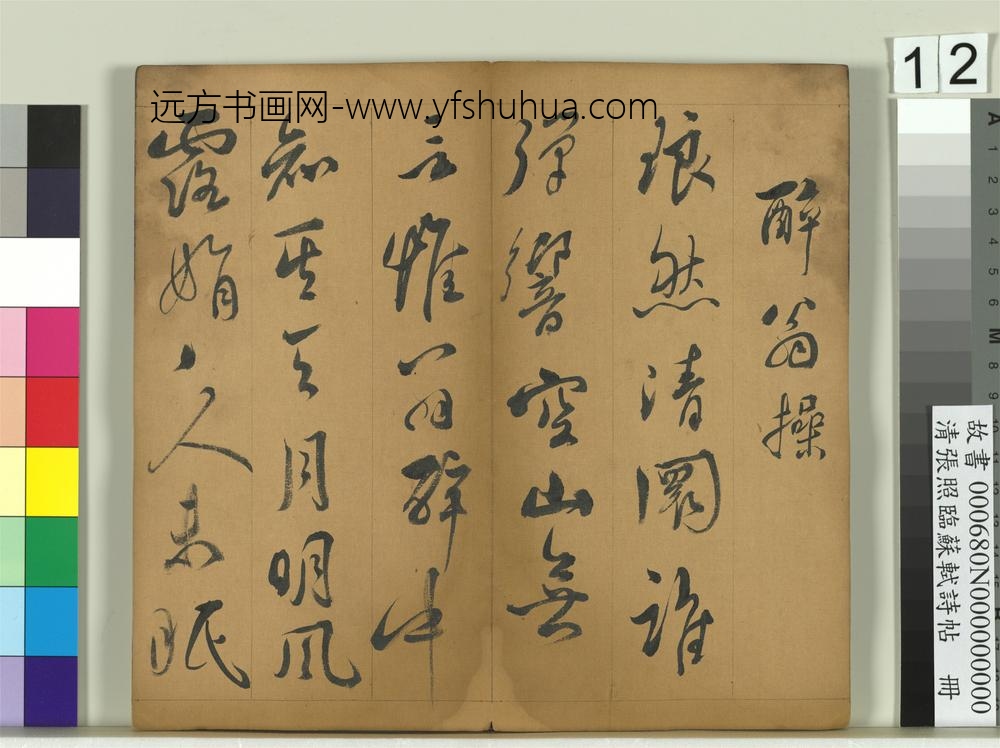 远方书画网-www.yfshuhua.com
12
醉翁操
琅然清圜誰
彈響空山無
言惟翁醉中
知其天月明風
露娟〻人未眠
故書 000680N000000000
清張照臨蘇軾詩帖 冊
A 1 2 3 4 5 6 M 8 9